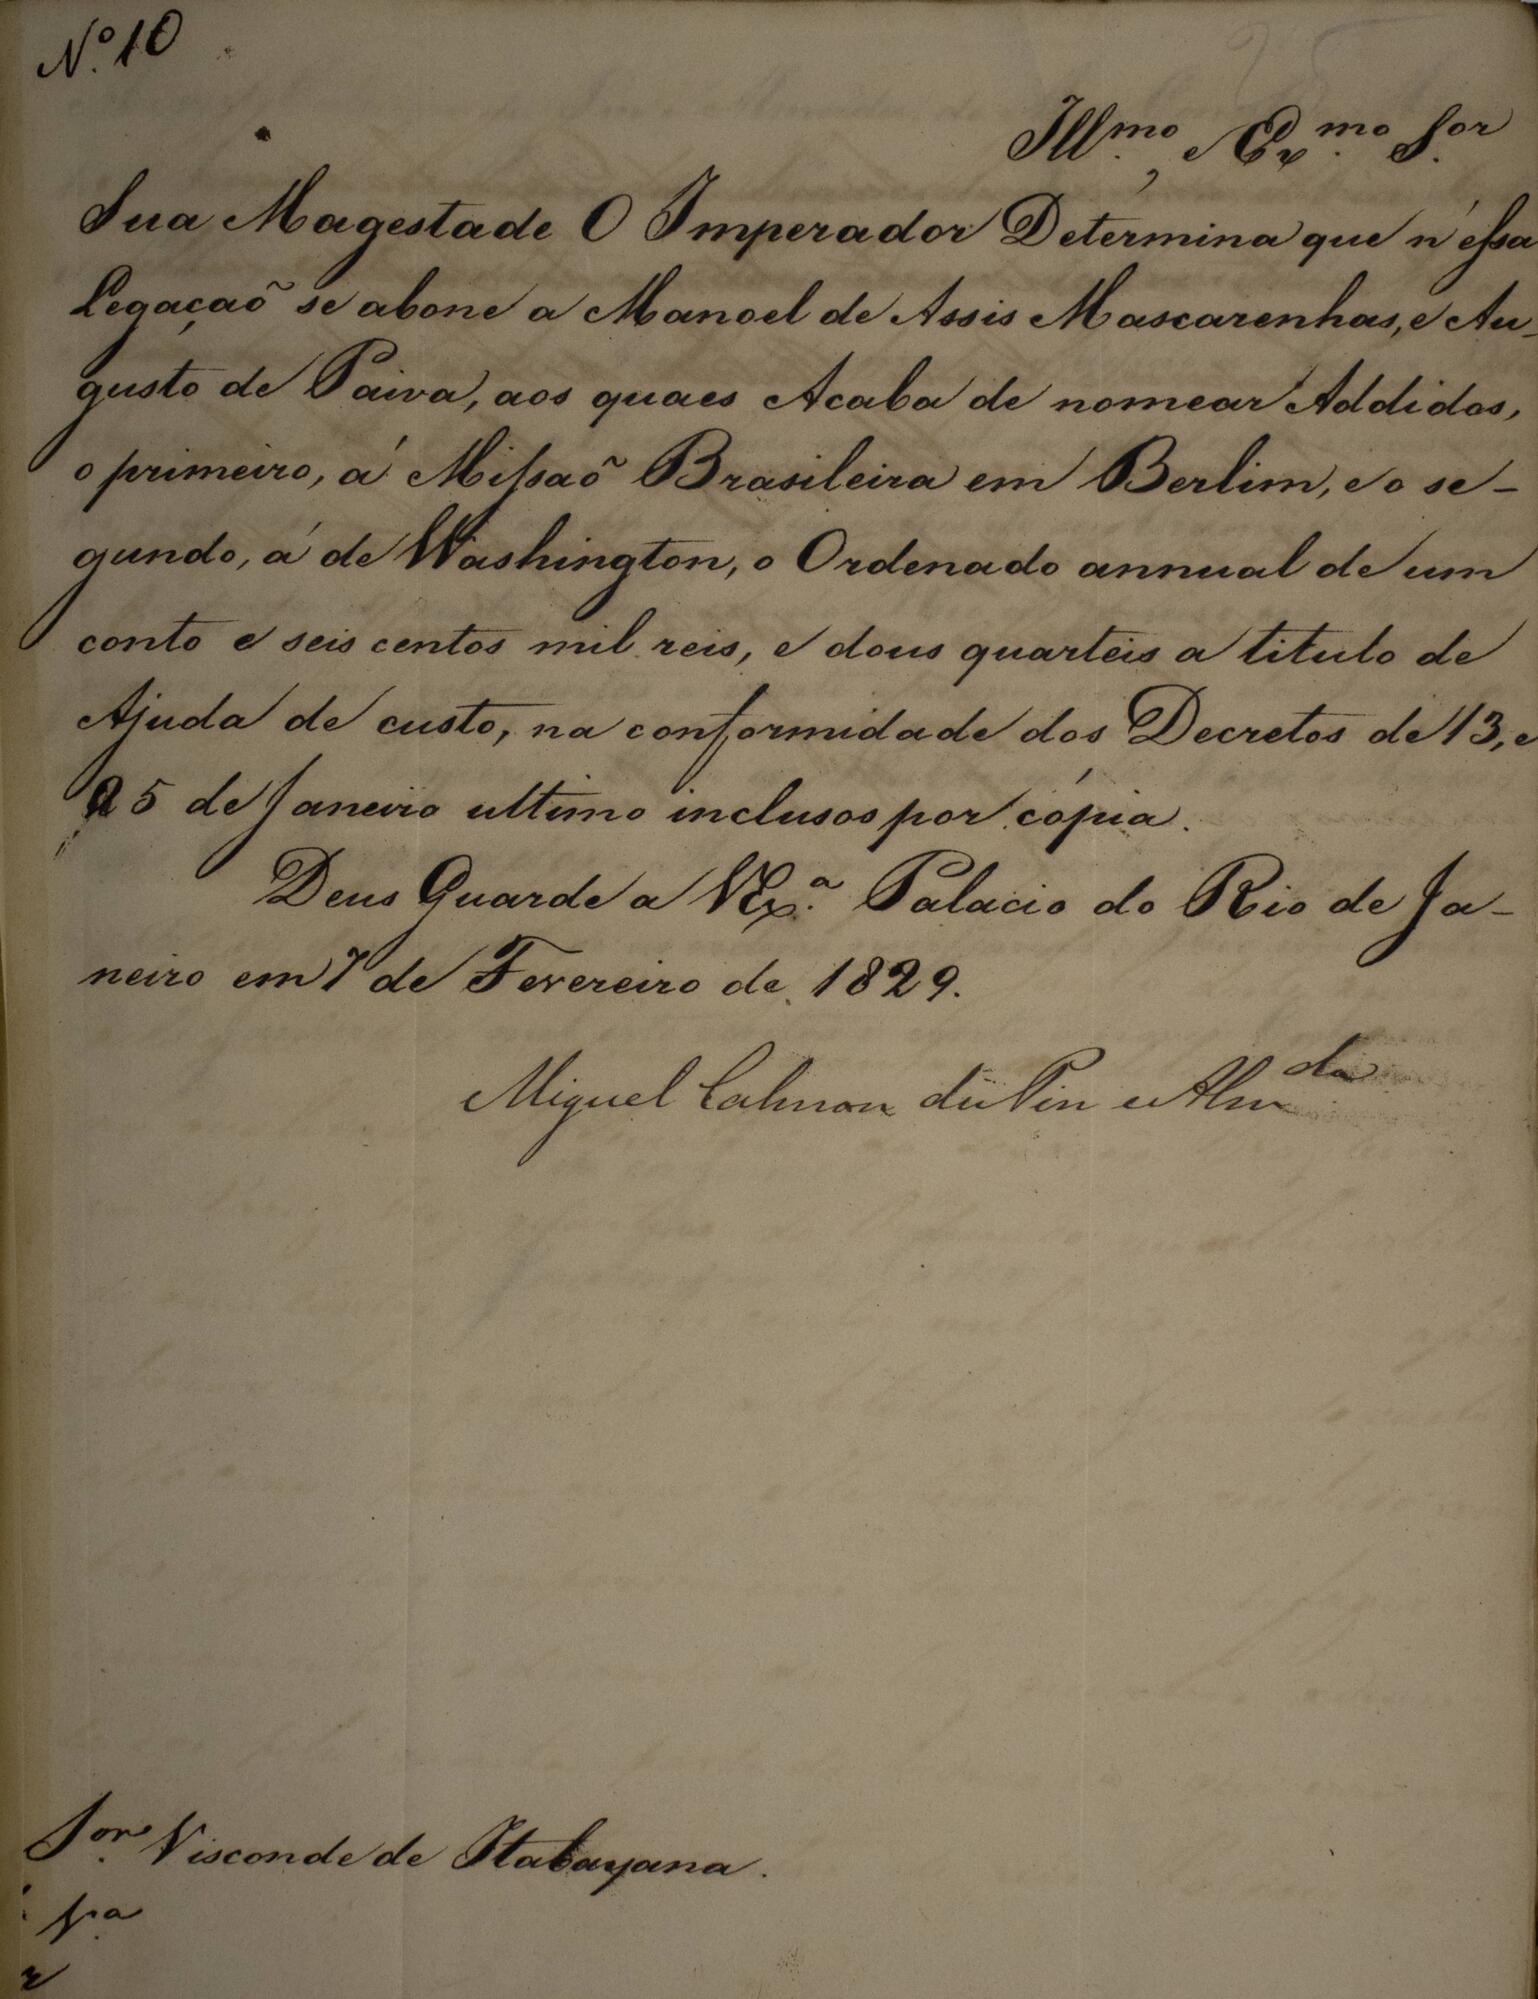 Nº. 10
Ill.mo, e Ex.mo S.or
Sua Magestade O Imperador Determina que n'éssa
Legaçaõ se abone a Manoel de Assis Mascarenhas, e Au-
gusto de Paiva, aos quaes Acaba de nomear Addidos,
o primeiro, á Missaõ Brasileira em Berlim, e o se-
gundo, á de Washington, o Ordenado annual de um
conto e seis centos mil reis, e dous quarteis a titulo de
Ajuda de custo, na conformidade dos Decretos de 13, e
25 de Janeiro ultimo inclusos por cópia.
Deus Guarde a VEx.ª Palacio do Rio de Ja-
neiro em 7 de Fevereiro de 1829.
Miguel Calmon du Pin e Alm.da
S.or Visconde de Itabayana.